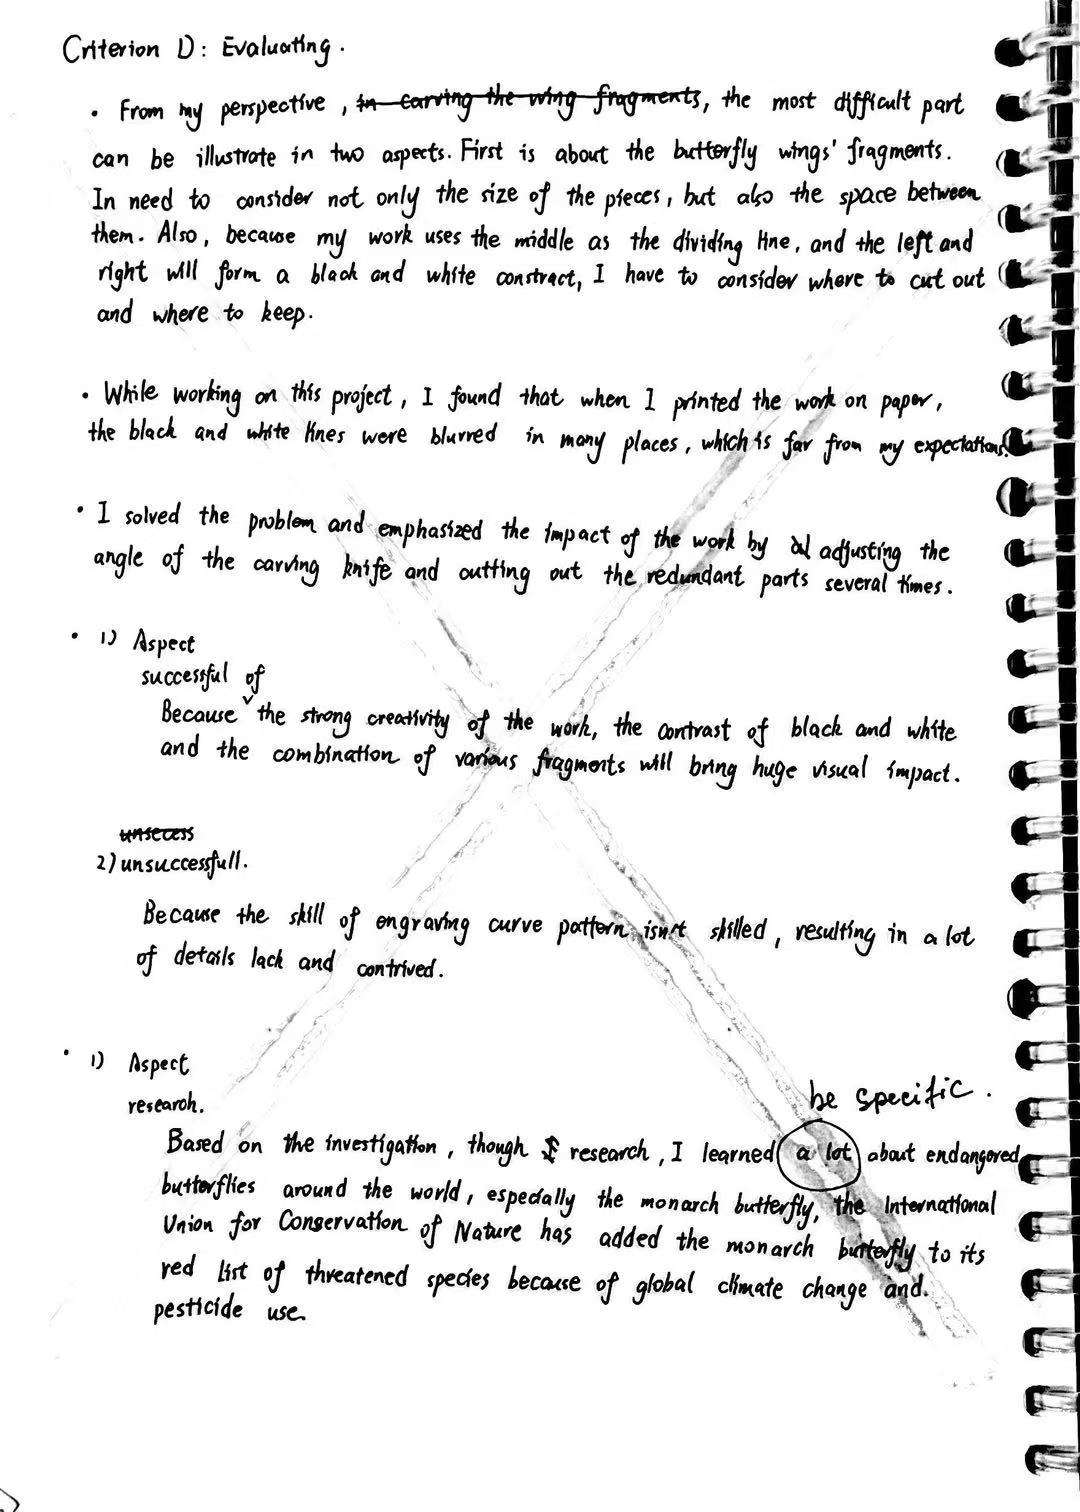 Criterion D: Evaluating.
• From my perspective, in carving the wing fragments, the most difficult part
can be illustrate in two aspects. First is about the butterfly wings' fragments.
In need to consider not only the size of the pieces, but also the space between
them. Also, because my work uses the middle as the dividing line, and the left and
right will form a black and white constract, I have to consider where to cut out
and where to keep.
• While working on this project, I found that when I printed the work on paper,
the black and white lines were blurred in many places, which is far from my expectations.
• I solved the problem and emphasized the impact of the work by adjusting the
angle of the carving knife and cutting out the redundant parts several times.
• 1) Aspect
successful of
Because the strong creativity of the work, the contrast of black and white
and the combination of various fragments will bring huge visual impact.
unsecess
2) unsuccessfull.
Because the skill of engraving curve pattern isn't skilled, resulting in a lot
of details lack and contrived.
• 1) Aspect
research.
be specific.
Based on the investigation, though research, I learned a lot about endangered
butterflies around the world, especially the monarch butterfly, the International
Union for Conservation of Nature has added the monarch butterfly to its
red list of threatened species because of global climate change and.
pesticide use.